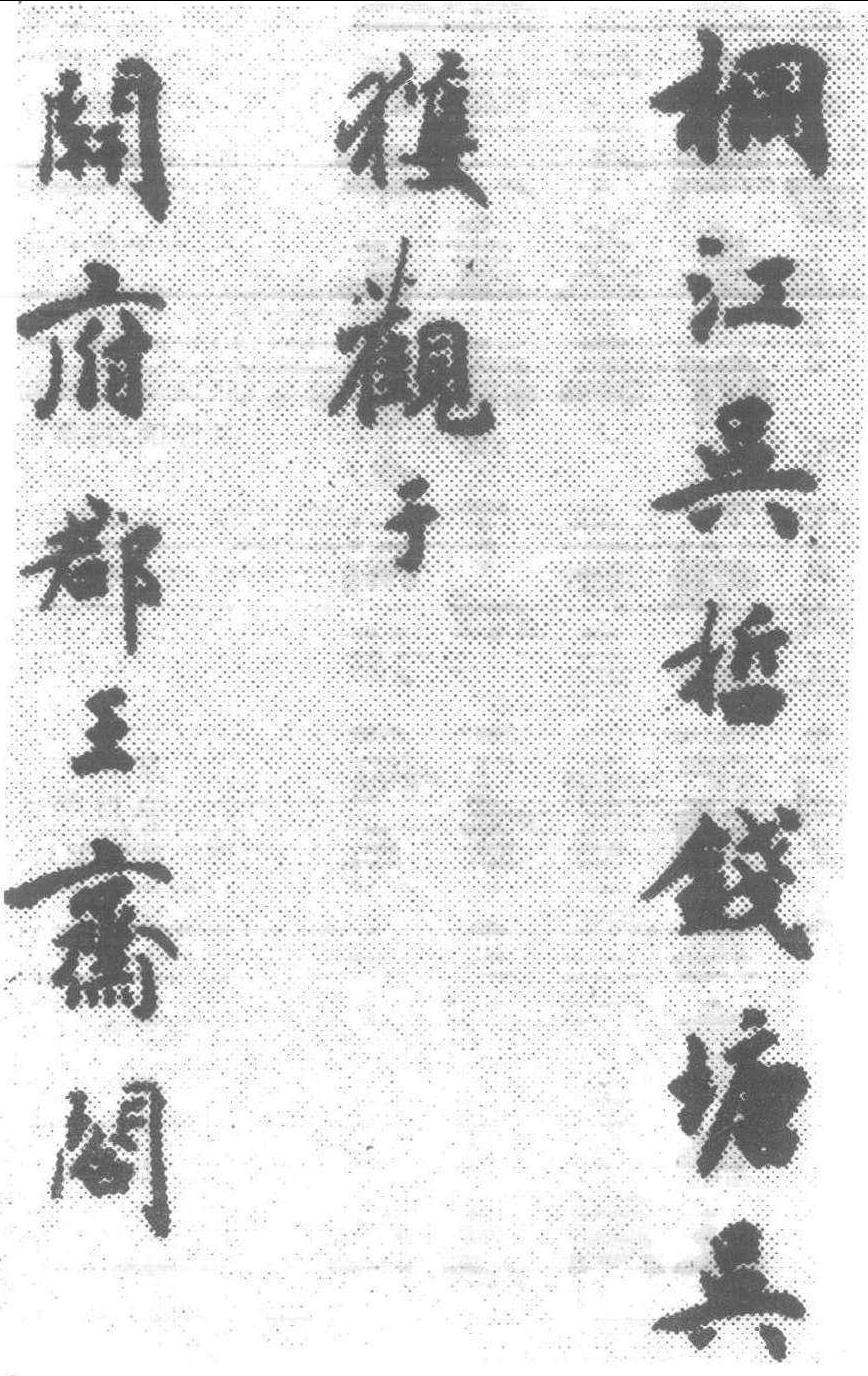 桐江吳哲錢塘吳
獲觀于
開府郡王齋閣